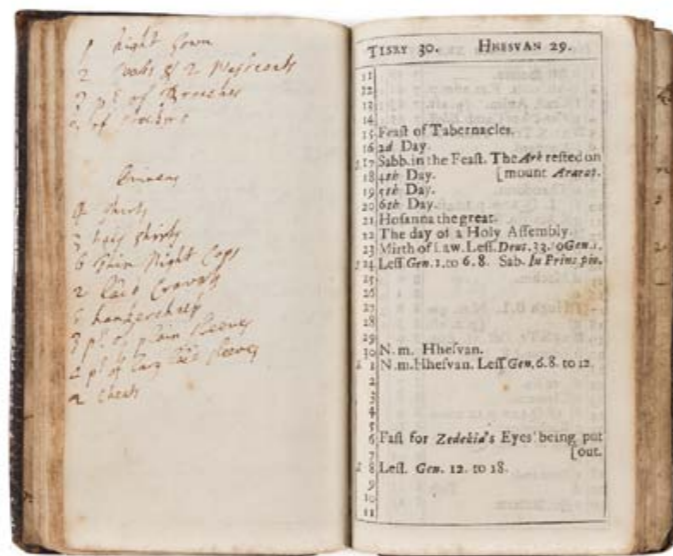 1 Night Gown
2 Coats & 2 Wastcoats
3 pr of Breeches
2 of
Linnens
4 Shirts
3 half Shirts
6 Plain Night Caps
2 lace Cravats
6 handkercheifs
3 pr of plain Sleeves
2 pr of lace Sleeves
2
TISRY 30. HHESVAN 29.
11
12
13
14
15 Feaſt of Tabernacles.
16 2d Day.
17 Sabb. in the Feaſt. The Ark reſted on
18 4th Day. [mount Ararat.
19 5th Day.
20 6th Day.
21 Hoſanna the great.
22 The day of a Holy Aſſembly.
23 Mirth of Law. Leſſ. Deut. 33. Gen. 1.
24 Leſſ Gen. 1. to 6. 8. Sab. In Principio.
25
26
27
28
29
30 N. m. Hheſvan.
1 N.m. Hheſvan. Leſſ Gen. 6. 8. to 12.
2
3
4
5
6 Faſt for Zedekia's Eyes being put
7 [out.
8 Leſſ. Gen. 12. to 18.
9
10
11